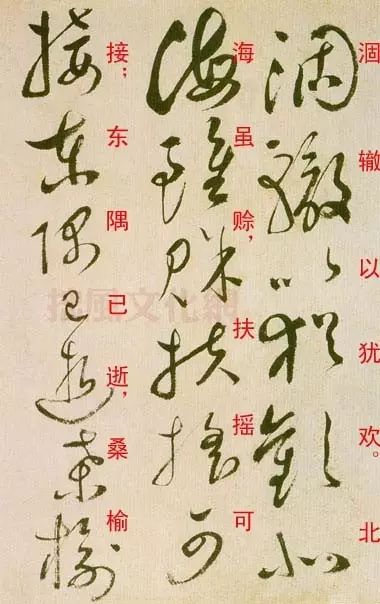 涸辙以犹欢。北
涸轍以猶歡北
海虽赊，扶摇可
海雖賒扶搖可
接；东隅已逝，桑榆
接東隅已逝桑榆